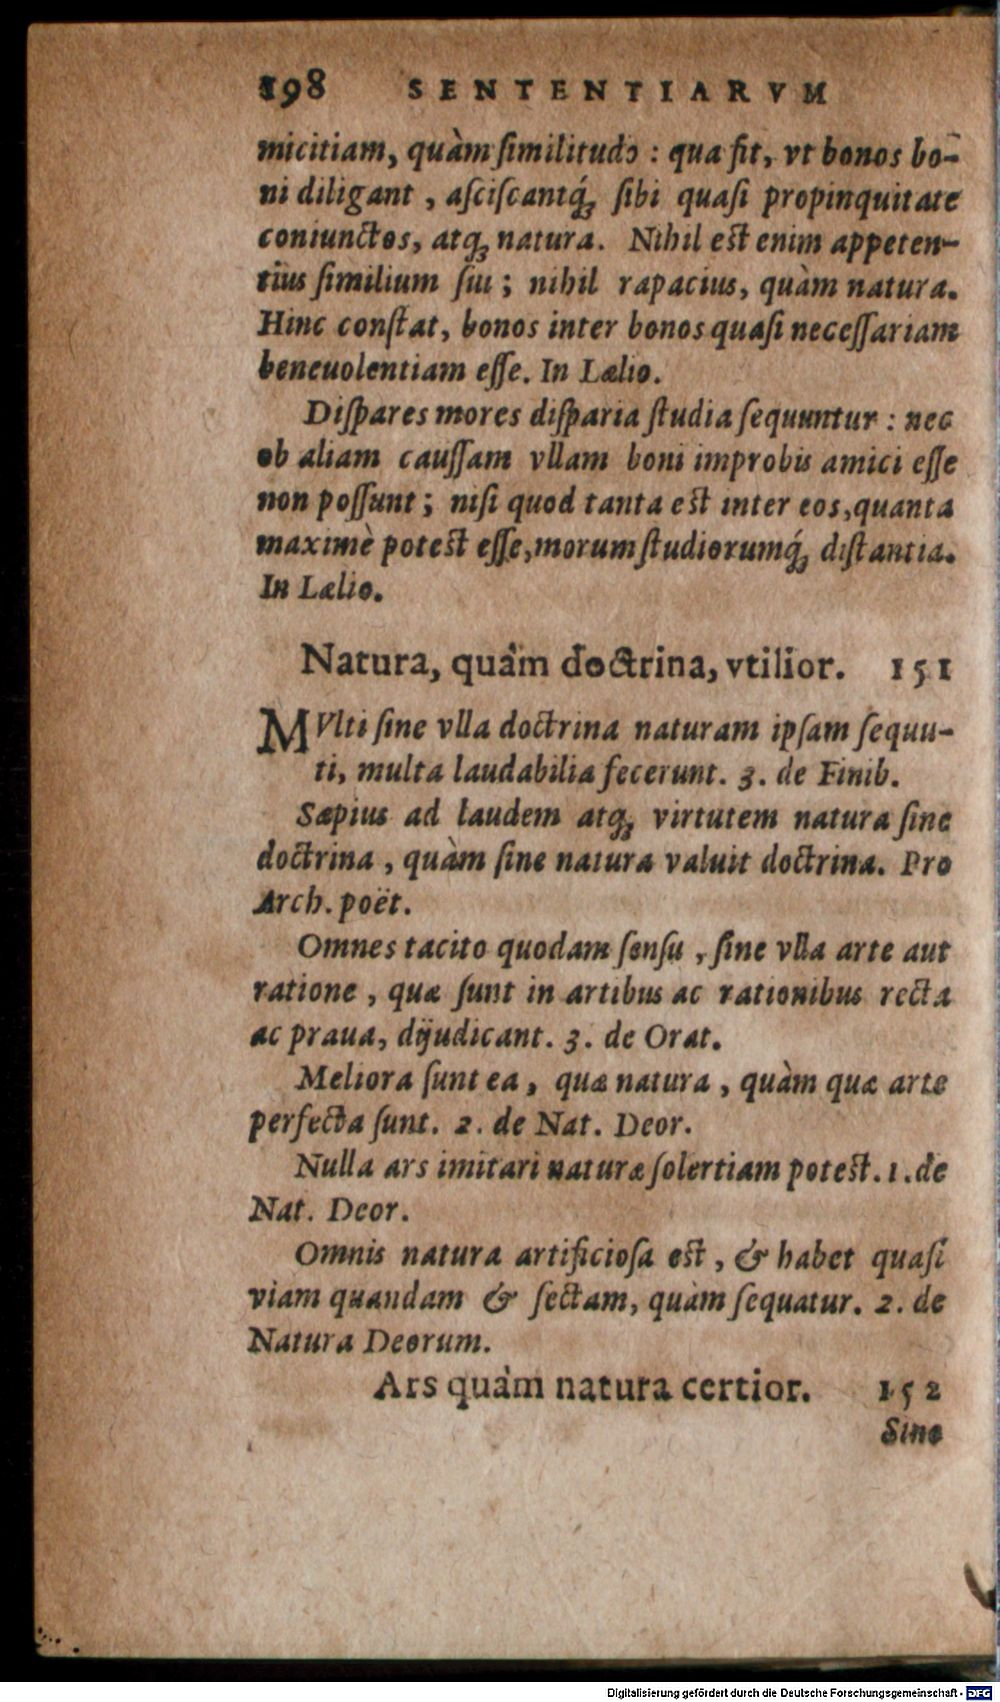 198 SENTENTIARVM
micitiam, quàm ſimilitudo : qua fit, vt bonos bo-
ni diligant , aſciſcantq́; ſibi quaſi propinquitate
coniunctos, atq; natura. Nihil eſt enim appeten-
tius ſimilium ſui ; nihil rapacius, quàm natura.
Hinc conſtat, bonos inter bonos quaſi neceſſariam
beneuolentiam eſſe. In Lælio.
Diſpares mores diſparia ſtudia ſequuntur : nec
ob aliam cauſſam vllam boni improbis amici eſſe
non poſſunt ; niſi quod tanta eſt inter eos,quanta
maximè poteſt eſſe,morum ſtudiorumq́; diſtantia.
In Lælio.
Natura, quàm doctrina, vtilior. 151
MVlti ſine vlla doctrina naturam ipſam ſequu-
ti, multa laudabilia fecerunt. 3. de Finib.
Sæpius ad laudem atq; virtutem natura ſine
doctrina , quàm ſine natura valuit doctrina. Pro
Arch. poët.
Omnes tacito quodam ſenſu , ſine vlla arte aut
ratione , quæ ſunt in artibus ac rationibus recta
ac praua, dijudicant. 3. de Orat.
Meliora ſunt ea, quæ natura , quàm quæ arte
perfecta ſunt. 2. de Nat. Deor.
Nulla ars imitari naturæ ſolertiam poteſt. 1. de
Nat. Deor.
Omnis natura artificioſa eſt , & habet quaſi
viam quandam & ſectam, quàm ſequatur. 2. de
Natura Deorum.
Ars quàm natura certior. 152
Sine
Digitalisierung gefördert durch die Deutsche Forschungsgemeinschaft - DFG